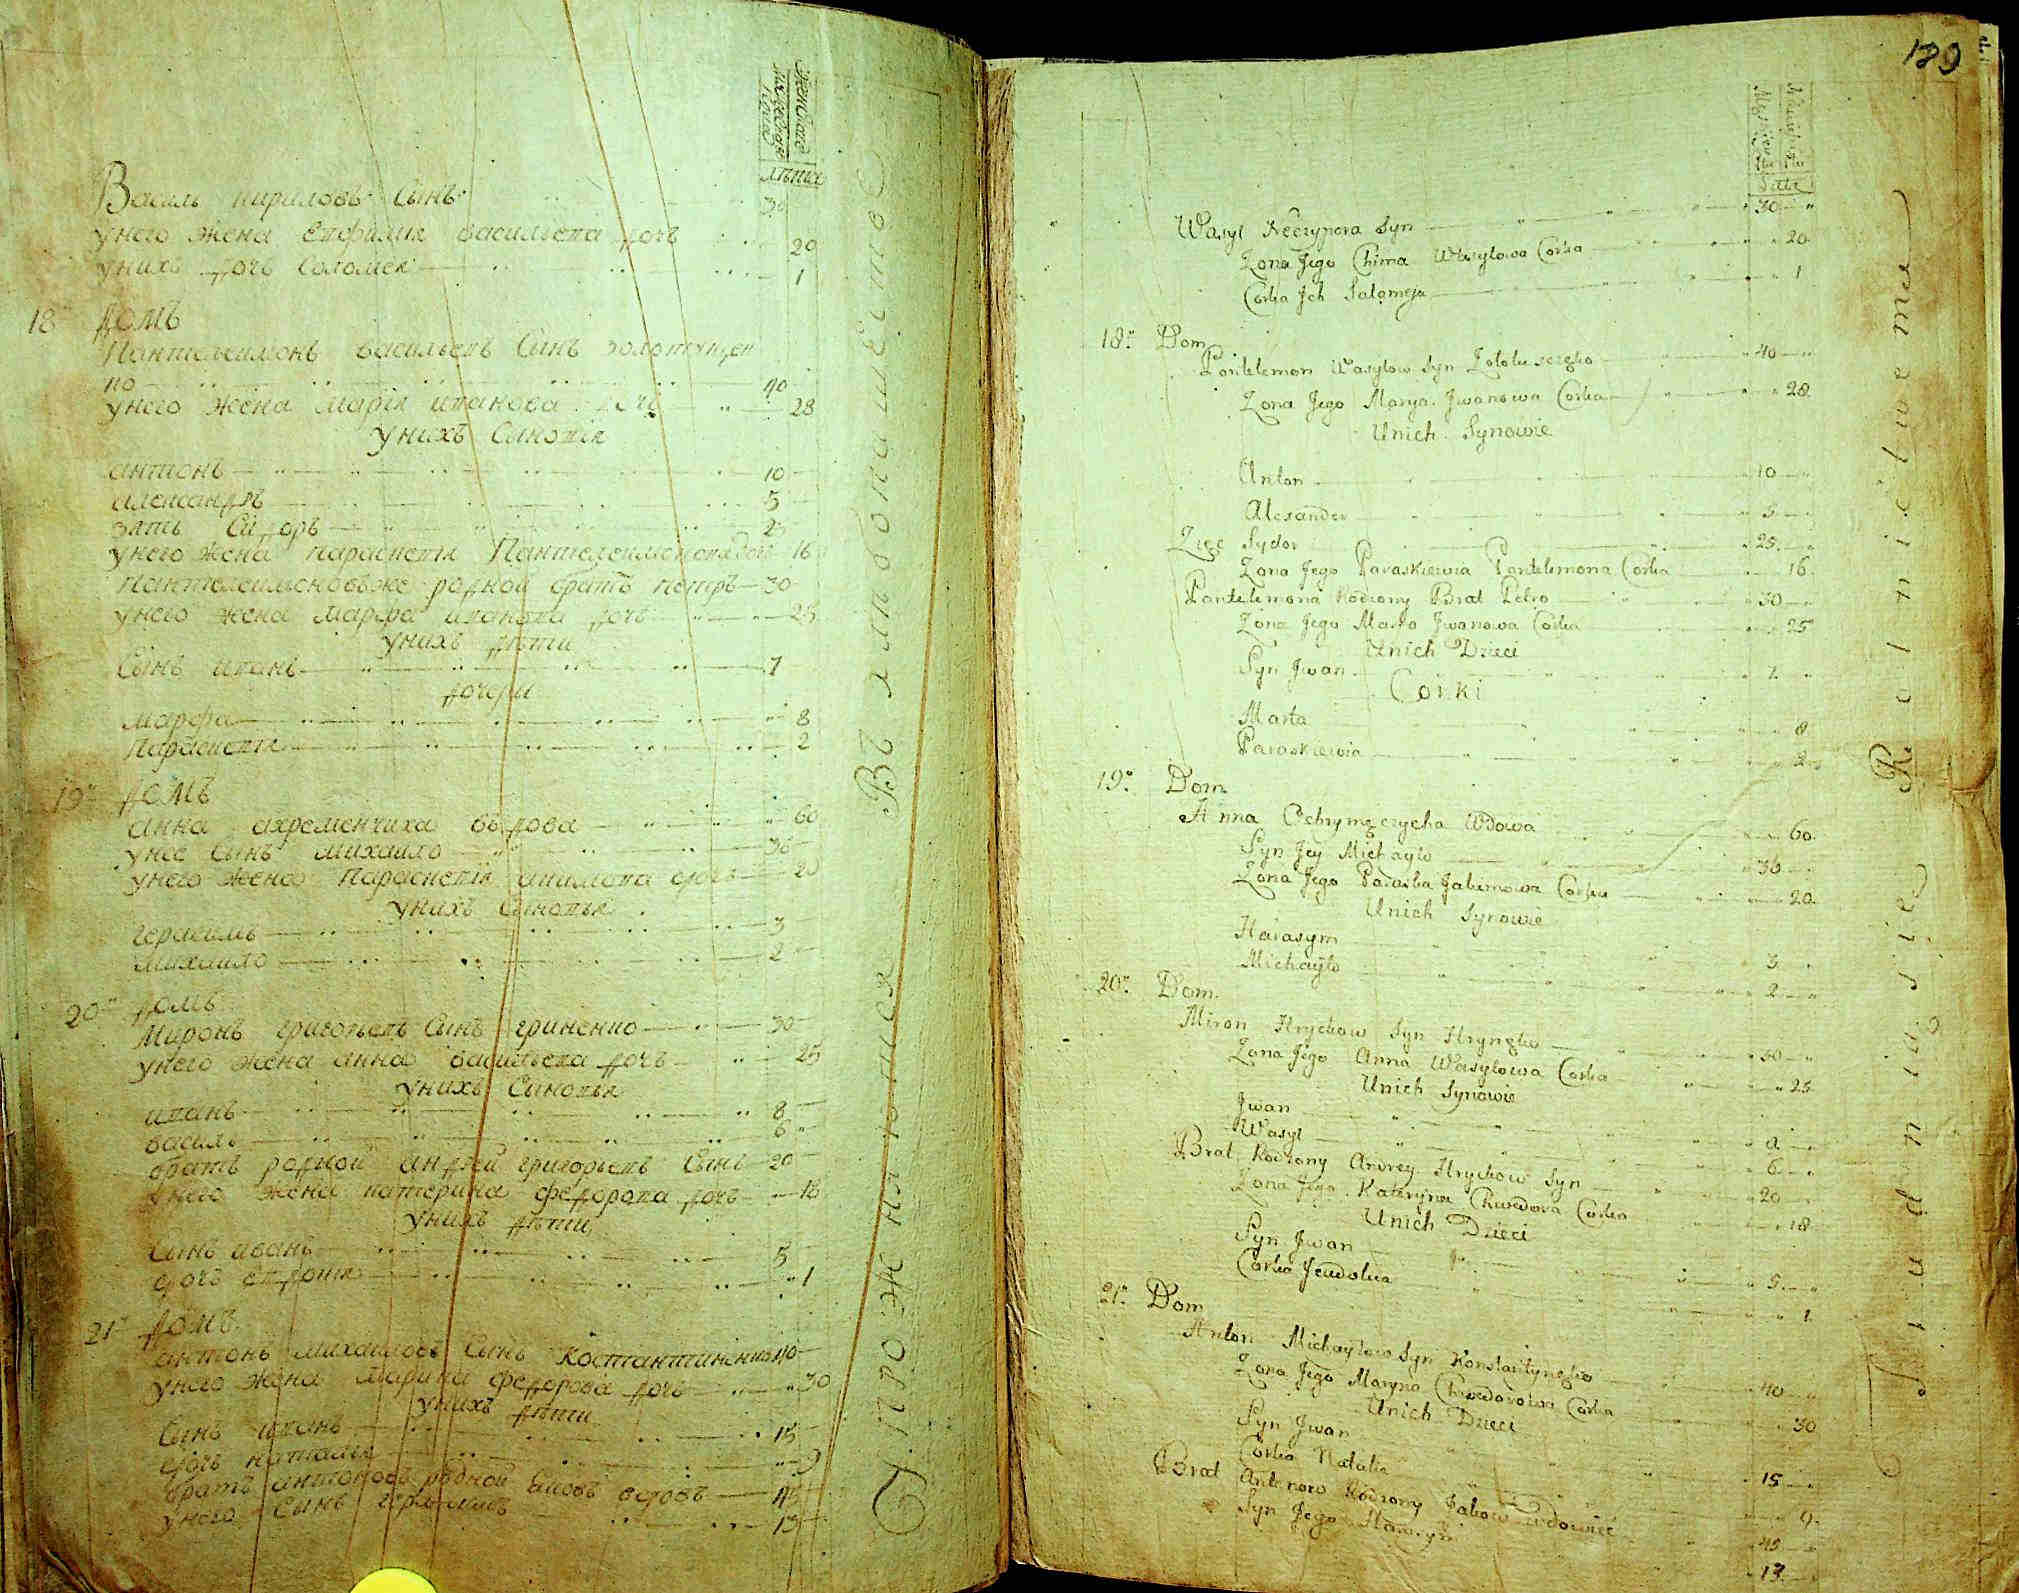 Женскаго
Мужеска
пола
лѣта
Василь кириловъ Сынъ 30
унего жена Епфимия васильева дочь 20
унихъ дочь Соломея 1
18 домъ
Пантелеимонъ васильевъ Сынъ золотущен
ко 40
унего жена Мария иванова дочь 28
унихъ Синовія
антонъ 10
александръ 5
зять Сидоръ 25
унего жена парасковія Пантелеимонова дочь 16
Пантелеимоновъже родной братъ петръ 30
унего жена марфа иванова дочь 25
унихъ дѣти
Сынъ иванъ 7
дочери
марфа 8
Парасковія 2
19 домъ
анна ахременчиха вдова 60
унее Сынъ михаило 36
унего жена Парасковія акимова дочь 20
унихъ Синовья
герасимъ 3
михаило 2
20 домъ
Миронъ григорьевъ Сынъ гриненко 30
унего жена анна васильева дочь 25
унихъ Синовья
иванъ 8
василь 6
братъ родной андрей григорьевъ Сынъ 20
унего жена катерина федорова дочь 18
унихъ дѣти
Сынъ иванъ 5
дочь евдокія 1
21 домъ
антонъ михаиловъ Сынъ Костантиненко 40
унего жена Марина федорова дочь 30
унихъ дѣти
Сынъ иванъ 15
дочь наталія 9
братъ антоновъ родной яковъ вдовъ 45
унего Сынъ герасимъ 13
129
Lata
Wasyl Neczypora Syn 30
Zona Jego Chima Wasylowa Corka 20
Corka Jch Salomeja 1
18. Dom
Pantelemon Wasylow Syn Zolotuszczęko 40
Zona Jego Marya Jwanowa Corka 28
Unich Synowie
Anton 10
Alexander 5
Zięc Sydor 25
Zona Jego Paraskiewia Pantelemona Corka 16
Pantelemona Rodzony Brat Petro 30
Zona Jego Marta Jwanowa Corka 25
Unich Dzieci
Syn Jwan 7
Corki
Marta 8
Paraskiewia 2
19. Dom
Anna Ochrymęczycha Wdowa 60
Syn Jey Michayło 36
Zona Jego Paraska Jakimowa Corka 20
Unich Synowie
Harasym 3
Michayło 2
20. Dom
Miron Hryckow Syn Hrynęko 30
Zona Jego Anna Wasylowa Corka 25
Unich Synowie
Jwan 8
Wasyl 6
Brat Rodzony Andrey Hryckow Syn 20
Zona Jego Kateryna Chwedora Corka 18
Unich Dzieci
Syn Jwan 5
Corka Jeudokia 1
21. Dom
Anton Michayłow Syn Konstantynęko 40
Zona Jego Maryna Chwedorowa Corka 30
Unich Dzieci
Syn Jwan 15
Corka Natalia 9
Brat Antonow Rodzony Jakow wdowiec 45
Syn Jego Harasym 13